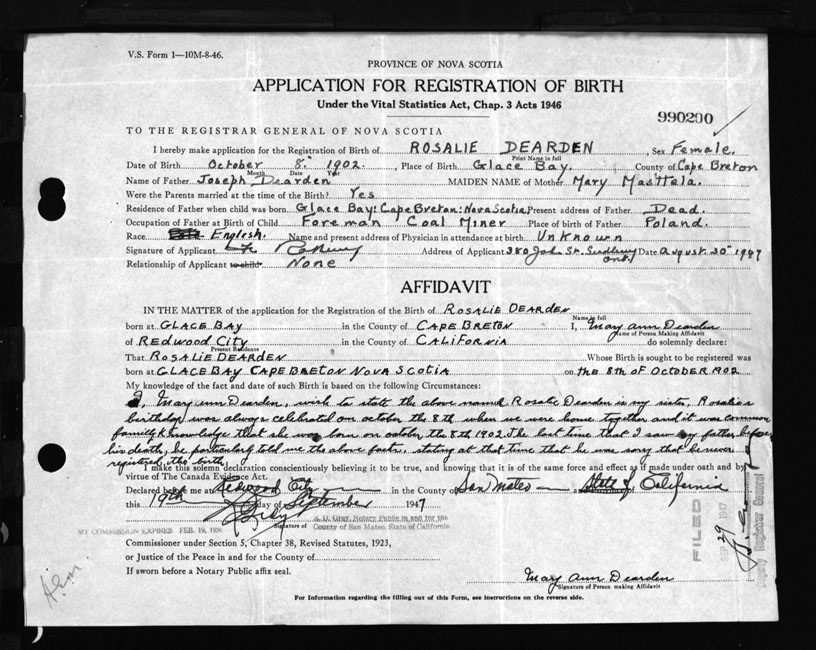 V.S. Form 1—10M-8-46.
PROVINCE OF NOVA SCOTIA
APPLICATION FOR REGISTRATION OF BIRTH
Under the Vital Statistics Act, Chap. 3 Acts 1946
990200
TO THE REGISTRAR GENERAL OF NOVA SCOTIA
I hereby make application for the Registration of Birth of ROSALIE DEARDEN, Sex Female.
Print Name in full
Date of Birth October 8. 1902. Place of Birth Glace Bay. County of Cape Breton
Month Date Year
Name of Father Joseph Dearden MAIDEN NAME of Mother Mary Masttela.
Were the Parents married at the time of the Birth? Yes
Residence of Father when child was born Glace Bay: Cape Breton: Nova Scotia Present address of Father Dead.
Occupation of Father at Birth of Child Foreman Coal Miner Place of birth of Father Poland.
Race English. Name and present address of Physician in attendance at birth Unknown
Signature of Applicant Address of Applicant 380 John St. Sudbury Ont. Date August. 30th 1947
Relationship of Applicant to child None
AFFIDAVIT
IN THE MATTER of the application of the Registration of the Birth of ROSALIE DEARDEN
Name in full
born at GLACE BAY in the County of CAPE BRETON I, Mary Ann Dearden
Name of Person Making Affidavit
of REDWOOD CITY in the County of CALIFORNIA do solemnly declare:
Present Residence
That ROSALIE DEARDEN Whose Birth is sought to be registered was
born at GLACE BAY CAPE BRETON NOVA SCOTIA on THE 8TH OF OCTOBER 1902
My knowledge of the fact and date of such Birth is based on the following Circumstances:
I, Mary Ann Dearden, wish to state the above named Rosalie Dearden is my sister, Rosalie's
birthday was always celebrated on october the 8th when we were home together and it was common
family knowledge that she was born on october the 8th 1902. The last time that I saw my father before
his death, he particularly told me the above facts, stating at that time that he was sorry that he never
registered the birth.
I make this solemn declaration conscientiously believing it to be true, and knowing that it is of the same force and effect as if made under oath and by
virtue of The Canada Evidence Act.
Declared before me at Redwood City in the County of San Mateo State of California
this 19th day of September 1947
Signature of
Notary Public in and for the
County of San Mateo, State of California
MY COMMISSION EXPIRES FEB. 19,
Commissioner under Section 5, Chapter 38, Revised Statutes, 1923,
or Justice of the Peace in and for the County of
If sworn before a Notary Public affix seal.
FILED
SEP 29 1947
Deputy Registrar General
Mary Ann Dearden
Signature of Person making Affidavit
For Information regarding the filling out of this Form, see instructions on the reverse side.